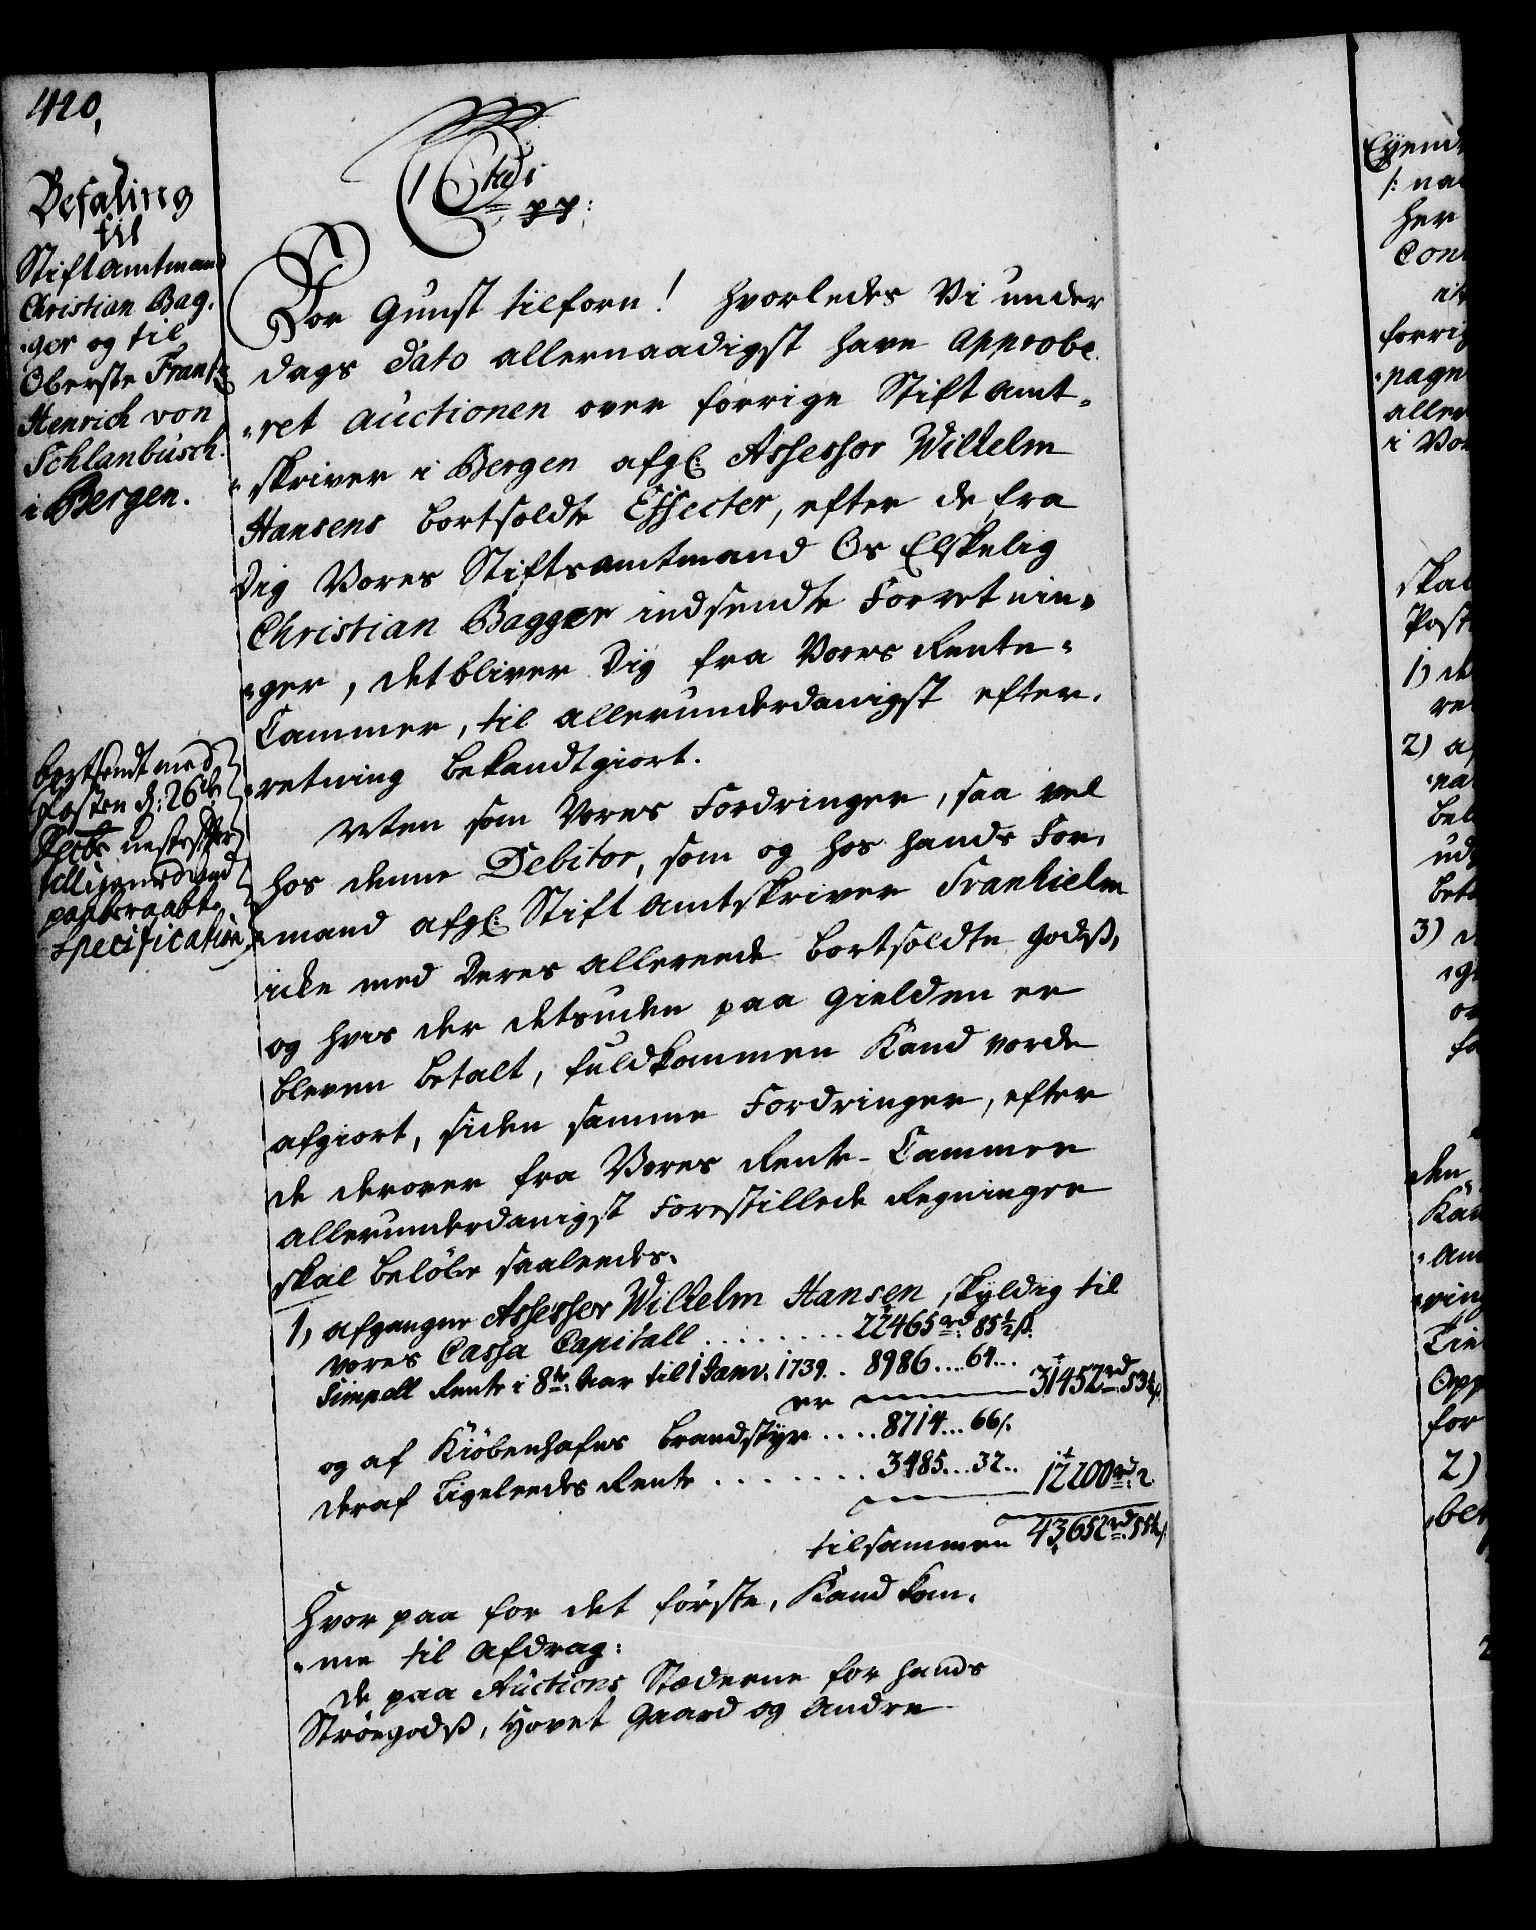 420,
Befaling
til
Stiftamtmand
Christian Bag-
-ger og til
Oberste Frantz
Henrich von
Schlanbusch
i Bergen.
bortsendt med
Posten d: 26de
Decbr nestefter
tillige med
Specification
C 6tus
pp:
Vor Gunst tilforn! Hvorledes Vi under
dags dato allernaadigst have approbe-
-ret auctionen over forrige Stiftamt-
-skriver i Bergen afg: Assessor Wilhelm
Hansens bortsoldte Effecter, efter de fra
Dig Vores Stiftsamtmand Os Elskelig
Christian Bagger indsendte Forretnin-
-ger, det bliver Dig fra Vores Rente-
Cammer, til allerunderdanigst efter-
-retning bekandtgiort.
Men som Vores Fordringer, saa vel
hos denne Debitor, som og hos hands For-
-mand afg: Stiftamtskriver Frankielm
icke med deres allereede bortsoldte godtz,
og hvis der desuden paa gielden er
bleven betalt, fuldkommen kand vorde
afgiort, siden samme Fordringer, efter
de derover fra Vores Rente-Cammer
allerunderdanigst Forestillede Regninger
skal beløbe saaledes.
1, afgangne Assessor Wilhelm Hansen skyldig til
vores Cassa Capitall ........ 22465rd: 85½ s.
Simpell Rente i 8te Aar til 1 Janv: 1739. . 8986 .... 64 ...
er 31452rd 53½ s.
og af Kiøbenhafns brandstyr .... 8714 ... 66 s.
deraf Ligeleedes Rente ........ 3485 ... 32 .. 12200rd: 2.
tilsammen 43652rd: 55½ s.
Hvor paa for det første, kand kom-
-me til Afdrag:
de paa Auctions Stæderne for hands
Strøegodtz, Hovet Gaard og Andre